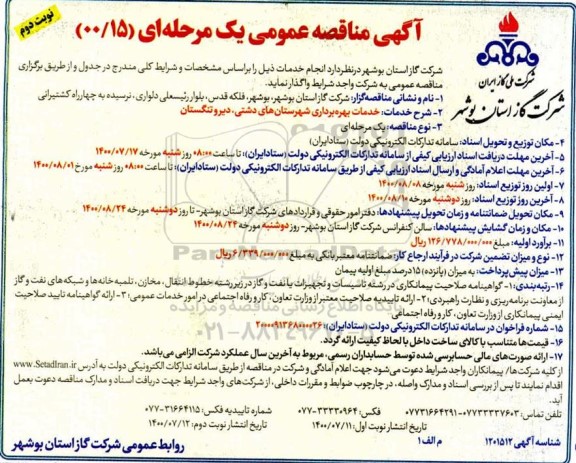 نوبت دوم
آگهی مناقصه عمومی یک مرحله‌ای (۰۰/۱۵)
شرکت ملی گاز ایران
شرکت گاز استان بوشهر
شرکت گاز استان بوشهر درنظر دارد انجام خدمات ذیل را براساس مشخصات و شرایط کلی مندرج در جدول و از طریق برگزاری
مناقصه عمومی به شرکت واجد شرایط واگذار نماید.
۱- نام و نشانی مناقصه‌گزار: شرکت گاز استان بوشهر، بوشهر، فلکه قدس، بلوار رئیسعلی دلواری، نرسیده به چهارراه کشتیرانی
۲- شرح خدمات: خدمات بهره‌برداری شهرستان‌های دشتی، دیر و تنگستان
۳- نوع مناقصه: یک مرحله‌ای
۴- مکان توزیع و تحویل اسناد: سامانه تدارکات الکترونیکی دولت (ستادایران)
۵- آخرین مهلت دریافت اسناد ارزیابی کیفی از سامانه تدارکات الکترونیکی دولت (ستادایران): تا ساعت ۰۸:۰۰ روز شنبه مورخه ۱۴۰۰/۰۷/۱۷
۶- آخرین مهلت اعلام آمادگی و ارسال اسناد ارزیابی کیفی از طریق سامانه تدارکات الکترونیکی دولت (ستادایران): تا ساعت ۰۸:۰۰ روز شنبه مورخ ۱۴۰۰/۰۸/۰۱
۷- اولین روز توزیع اسناد: روز شنبه مورخه ۱۴۰۰/۰۸/۰۸
۸- آخرین روز توزیع اسناد: روز دوشنبه مورخه ۱۴۰۰/۰۸/۱۰
۹- مکان تحویل ضمانتنامه و زمان تحویل پیشنهادها: دفتر امور حقوقی و قراردادهای شرکت گاز استان بوشهر- تا روز دوشنبه مورخه ۱۴۰۰/۰۸/۲۴
۱۰- مکان و زمان گشایش پیشنهادها: سالن کنفرانس شرکت گاز استان بوشهر- روز دوشنبه مورخه ۱۴۰۰/۰۸/۲۴
۱۱- برآورد اولیه: مبلغ ۱۲۶/۷۷۸/۰۰۰/۰۰۰ ریال
۱۲- نوع و میزان تضمین شرکت در فرآیند ارجاع کار: ضمانتنامه معتبر بانکی به مبلغ ۶/۳۳۹/۰۰۰/۰۰۰ ریال
۱۳- میزان پیش‌پرداخت: به میزان (پانزده) ۱۵درصد مبلغ اولیه پیمان
۱۴- رتبه‌بندی: ۱- گواهینامه صلاحیت پیمانکاری در رشته تاسیسات و تجهیزات یا نفت و گاز در زیررشته خطوط انتقال، مخازن، تلمبه‌خانه‌ها و شبکه‌های نفت و گاز
از معاونت برنامه‌ریزی و نظارت راهبردی ۲- ارائه تاییدیه صلاحیت معتبر از وزارت تعاون، کار و رفاه اجتماعی در امور خدمات عمومی؛ ۳- ارائه گواهینامه تایید صلاحیت
ایمنی پیمانکاری از وزارت تعاون، کار و رفاه اجتماعی
۱۵- شماره فراخوان در سامانه تدارکات الکترونیکی دولت (ستادایران): ۲۰۰۰۰۹۱۳۶۸۰۰۰۰۲۶
۱۶- قیمت‌ها متناسب با کالای ساخت داخل با لحاظ کیفیت ارائه گردد.
۱۷- ارائه صورت‌های مالی حسابرسی شده توسط حسابداران رسمی، مربوط به آخرین سال عملکرد شرکت الزامی می‌باشد.
از کلیه شرکت‌ها/ پیمانکاران واجد شرایط دعوت می‌شود جهت اعلام آمادگی و شرکت در مناقصه از طریق سامانه تدارکات الکترونیکی دولت به آدرس www.SetadIran.ir
اقدام نمایند تا پس از بررسی اسناد و مدارک واصله، در چارچوب ضوابط و مقررات داخلی، از شرکت‌های واجد شرایط جهت دریافت اسناد و مدارک مناقصه دعوت بعمل
آید.
تلفن تماس: ۰۷۷۳۳۳۳۷۶۰۳-۰۷۷۳۱۶۶۴۲۹۱ فکس: ۰۷۷-۳۳۳۳۰۹۶۴ شماره تاییدیه فکس: ۰۷۷-۳۱۶۶۴۱۱۵
تاریخ انتشار نوبت اول: ۱۴۰۰/۰۷/۱۱ تاریخ انتشار نوبت دوم: ۱۴۰۰/۰۷/۱۲
شناسه آگهی ۱۲۰۱۵۱۲ م الف ۱ روابط عمومی شرکت گاز استان بوشهر